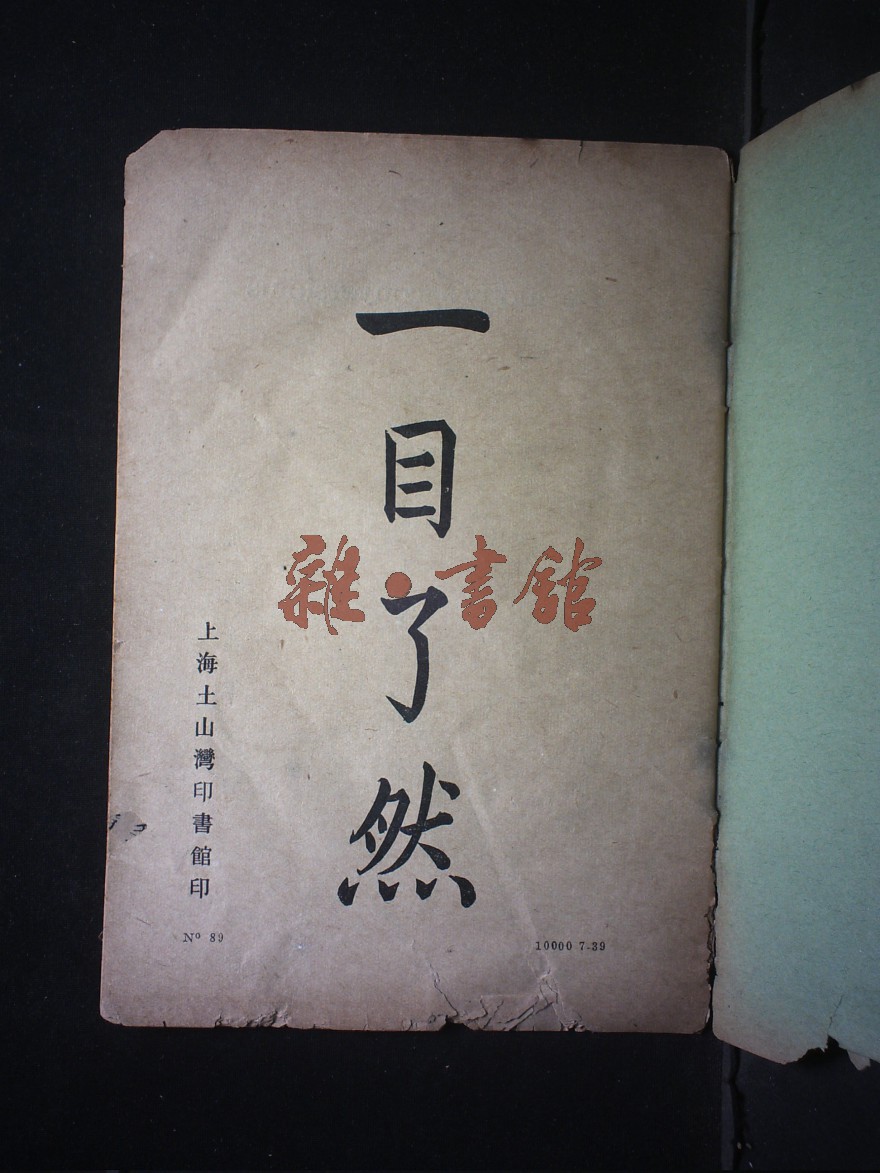 一目了然
雜·書館
上海土山灣印書館印
Nº 89
10000 7-39